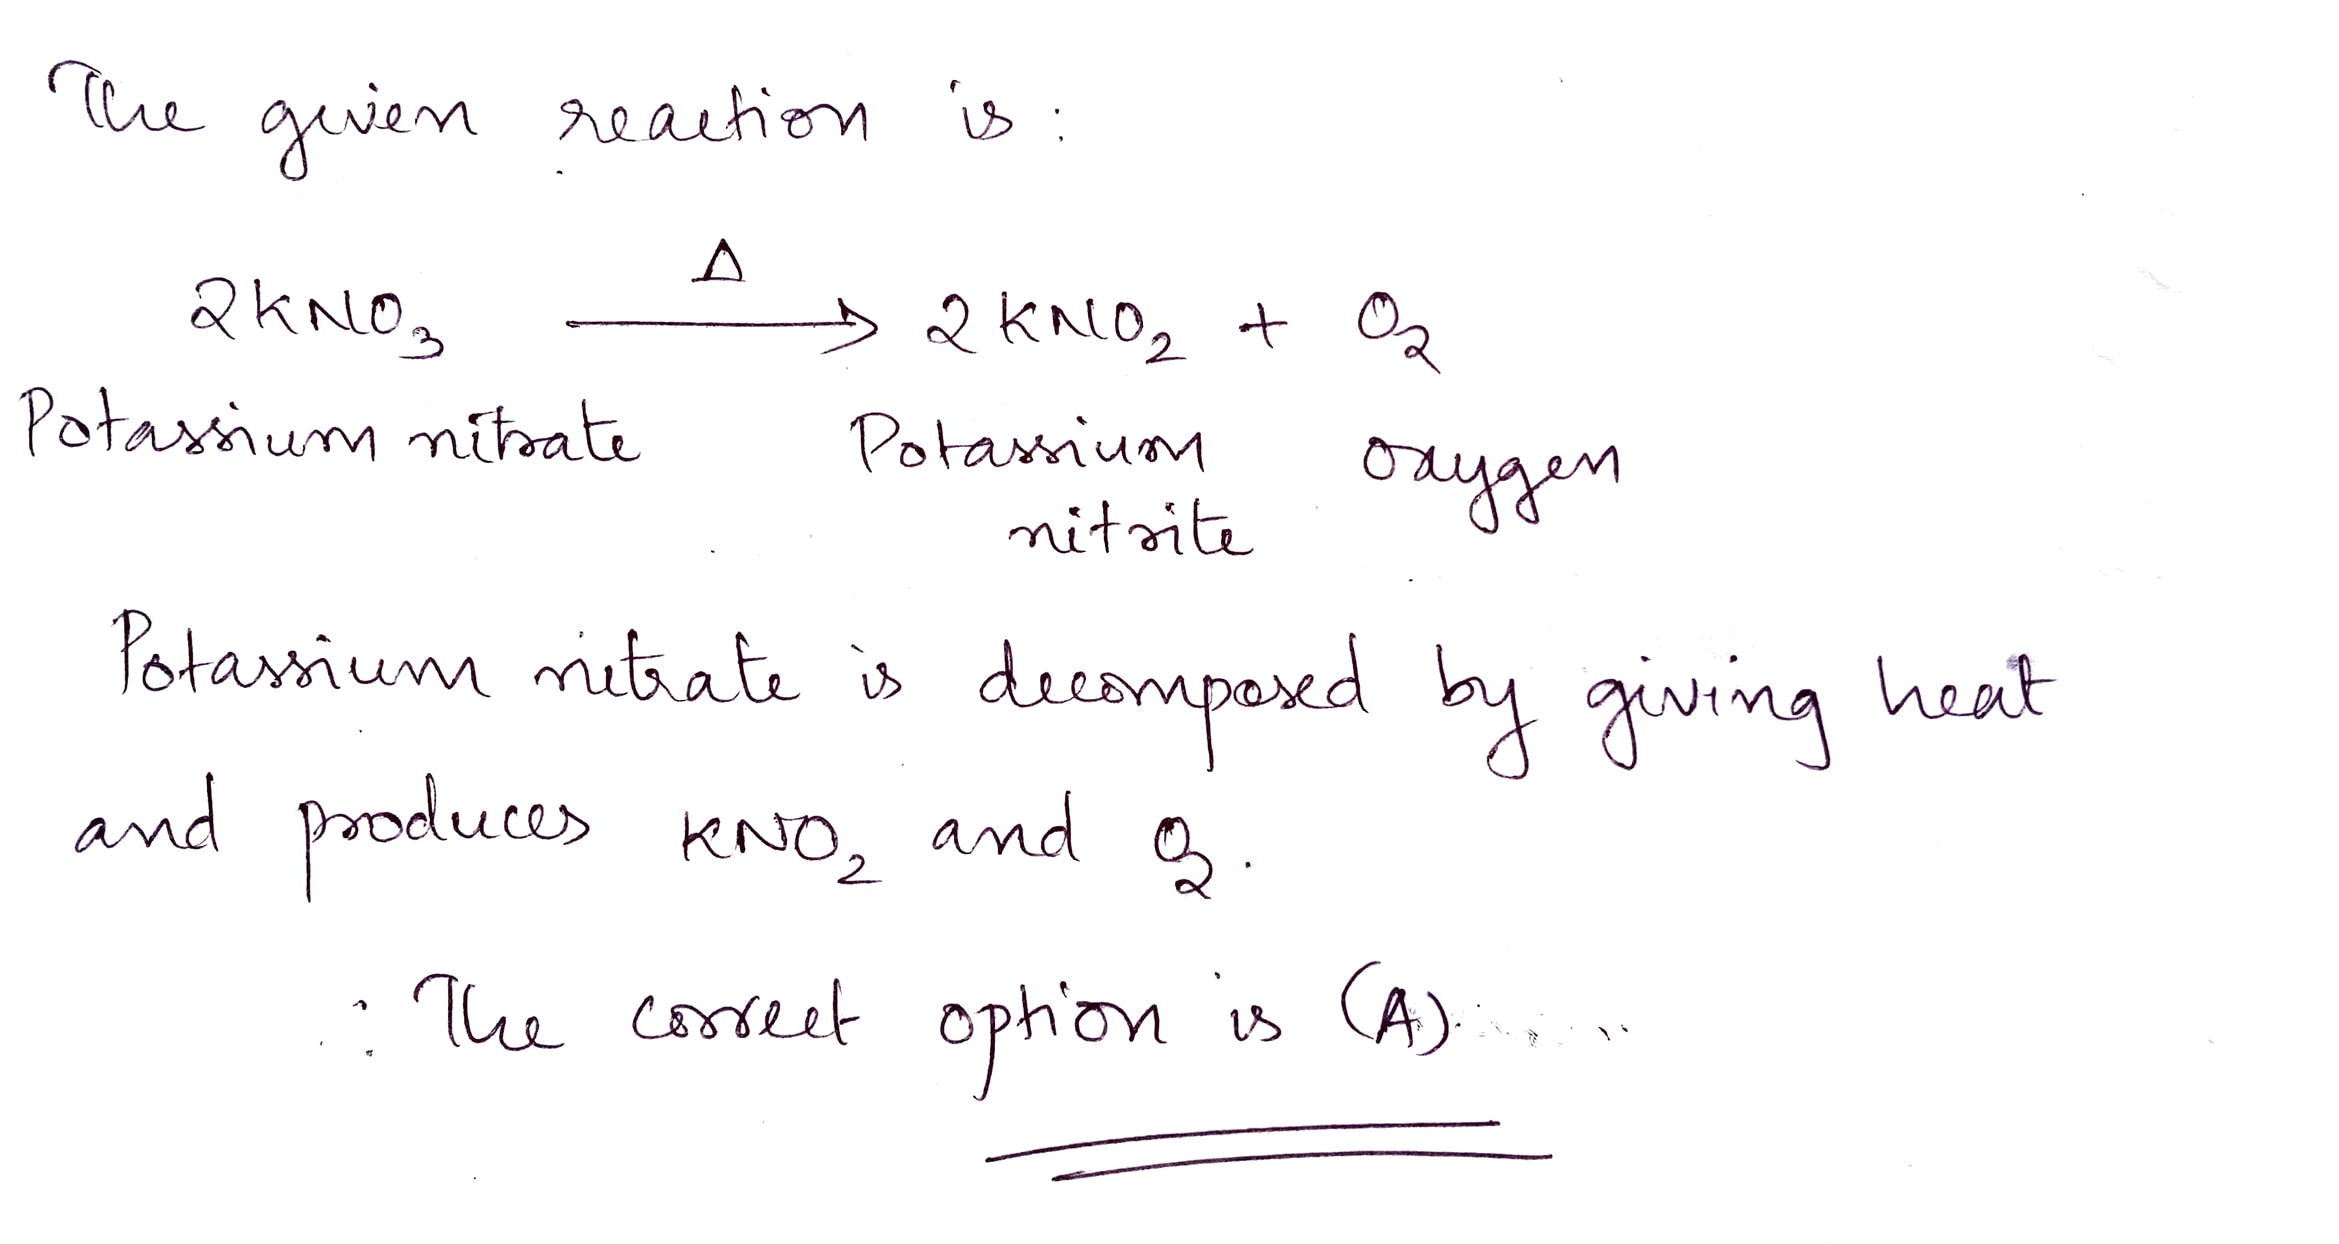 The given reaction is:
Δ
2KNO₃ → 2KNO₂ + O₂
Potassium nitrate Potassium oxygen
nitrite
Potassium nitrate is decomposed by giving heat
and produces KNO₂ and O₂.
∴ The correct option is (A).